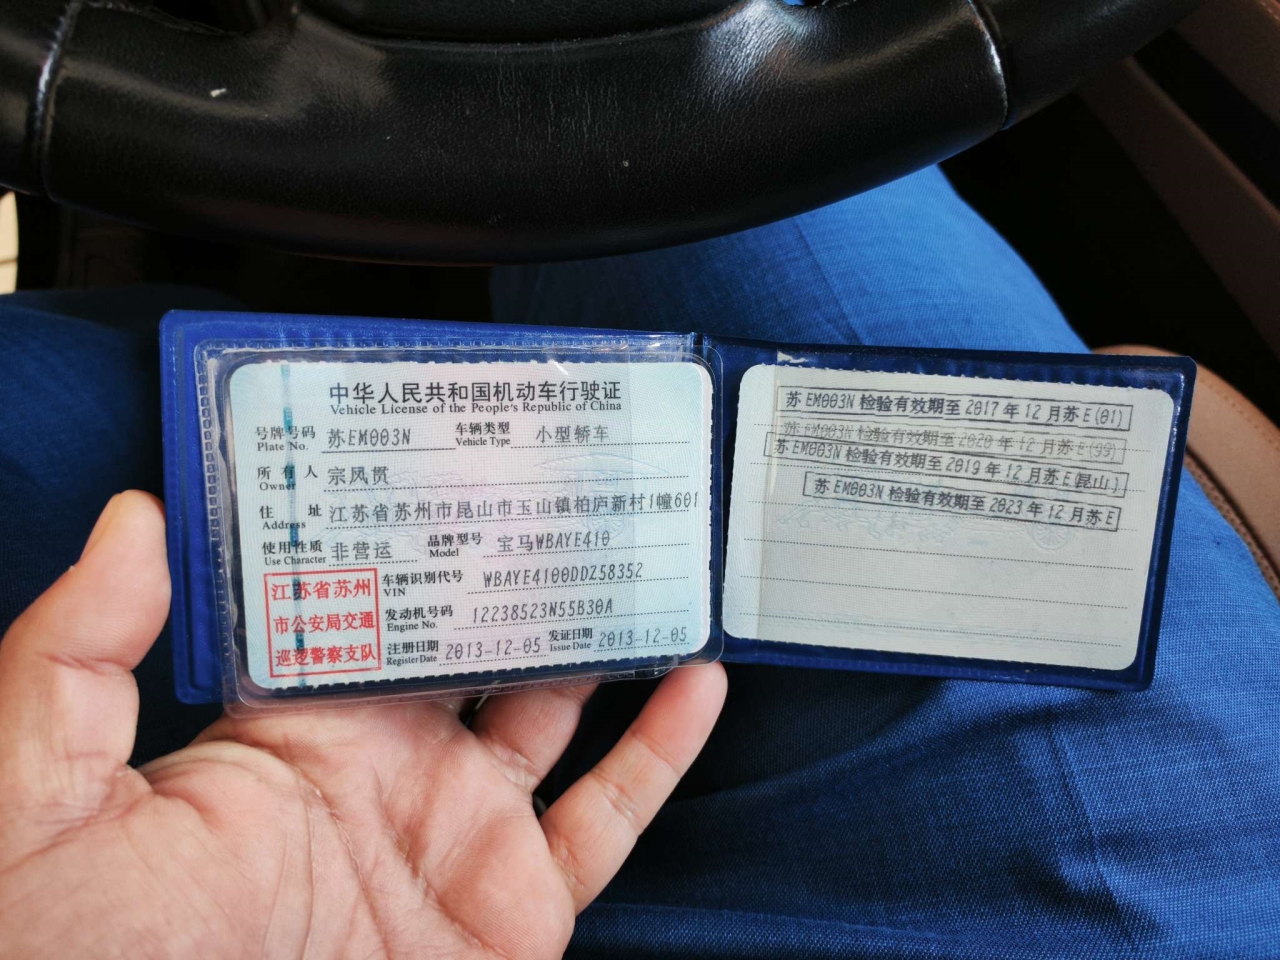 中华人民共和国机动车行驶证
Vehicle License of the People's Republic of China
号牌号码 苏EM003N 车辆类型 小型轿车
Plate No. Vehicle Type
所有人 宗凤贯
Owner
住址 江苏省苏州市昆山市玉山镇柏庐新村1幢601
Address
使用性质 非营运 品牌型号 宝马WBAYE410
Use Character Model
江苏省苏州
市公安局交通
巡逻警察支队
车辆识别代号 WBAYE4100DDZ58352
VIN
发动机号码 12238523N55B30A
Engine No.
注册日期 2013-12-05 发证日期 2013-12-05
Register Date Issue Date
苏EM003N 检验有效期至2017年12月苏E(01)
苏EM003N 检验有效期至2020年12月苏E(99)
苏EM003N 检验有效期至2019年12月苏E(昆山)
苏EM003N 检验有效期至2023年12月苏E